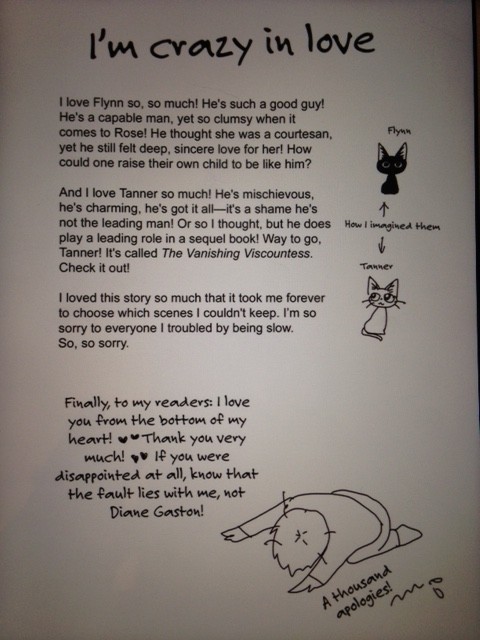 I'm crazy in love
I love Flynn so, so much! He's such a good guy!
He's a capable man, yet so clumsy when it
comes to Rose! He thought she was a courtesan,
yet he still felt deep, sincere love for her! How
could one raise their own child to be like him?
Flynn
And I love Tanner so much! He's mischievous,
he's charming, he's got it all—it's a shame he's
not the leading man! Or so I thought, but he does
play a leading role in a sequel book! Way to go,
Tanner! It's called The Vanishing Viscountess.
Check it out!
How I imagined them
Tanner
I loved this story so much that it took me forever
to choose which scenes I couldn't keep. I'm so
sorry to everyone I troubled by being slow.
So, so sorry.
Finally, to my readers: I love
you from the bottom of my
heart! ♥♥ Thank you very
much! ♥♥ If you were
disappointed at all, know that
the fault lies with me, not
Diane Gaston!
A thousand
apologies!